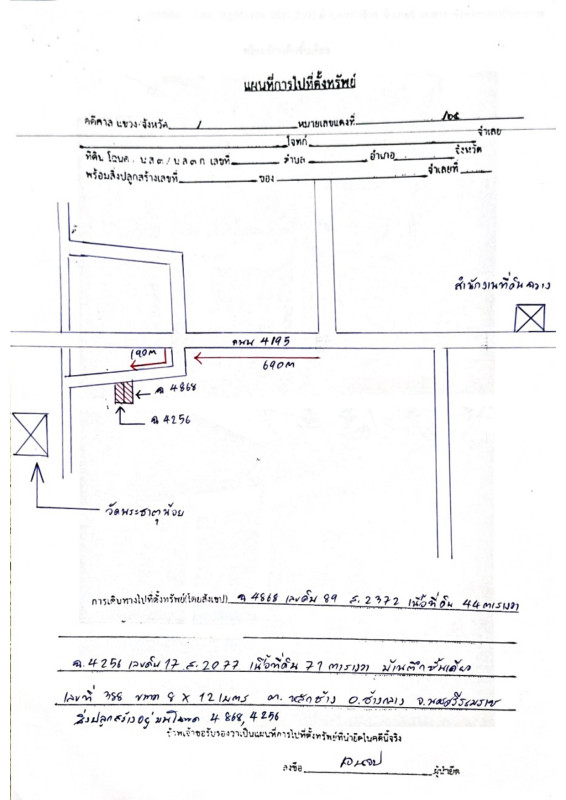 แผนที่การไปที่ตั้งทรัพย์
คดีศาล แขวง/จังหวัด / หมายเลขแดงที่
โจทก์ จำเลย
ที่ดิน โฉนด น.ส.๓/น.ส.๓ ก เลขที่ ตำบล อำเภอ จังหวัด
พร้อมสิ่งปลูกสร้างเลขที่ ของ จำเลยที่
สำนักงานที่ดินฉวาง
ถนน 4195
190m
690m
ฉ 4868
ฉ 4256
วัดพระธาตุน้อย
การเดินทางไปที่ตั้งทรัพย์(โดยสังเขป) ฉ 4868 เลขดิน 89 ส. 2372 เนื้อที่ดิน 44 ตารางวา
ฉ. 4256 เลขดิน 17 ส. 2077 เนื้อที่ดิน 71 ตารางวา บ้านตึกชั้นเดียว
เลขที่ 388 ขนาด 8 x 12 เมตร ต. หลักช้าง อ. ช้างกลาง จ. นครศรีธรรมราช
สิ่งปลูกสร้างอยู่บนโฉนด 4868, 4256
ข้าพเจ้าขอรับรองว่าเป็นแผนที่การไปที่ตั้งทรัพย์ที่นำยึดในคดีนี้จริง
ลงชื่อ ผู้นำยึด